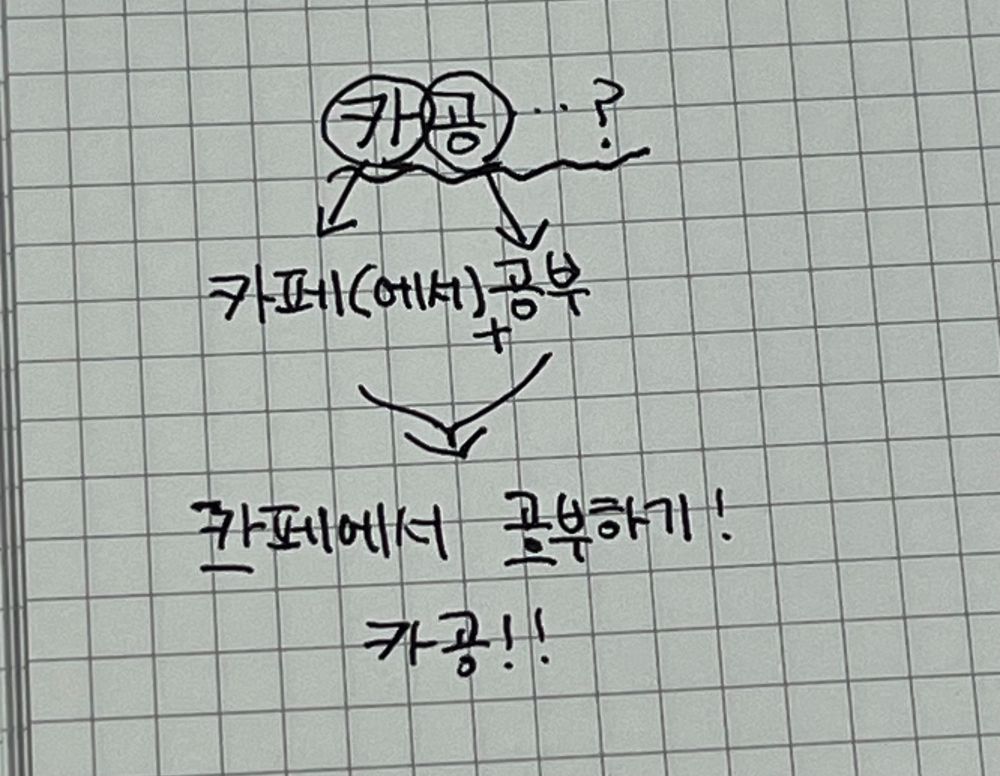 카공...?
카페(에서)+공부
카페에서 공부하기!
카공!!